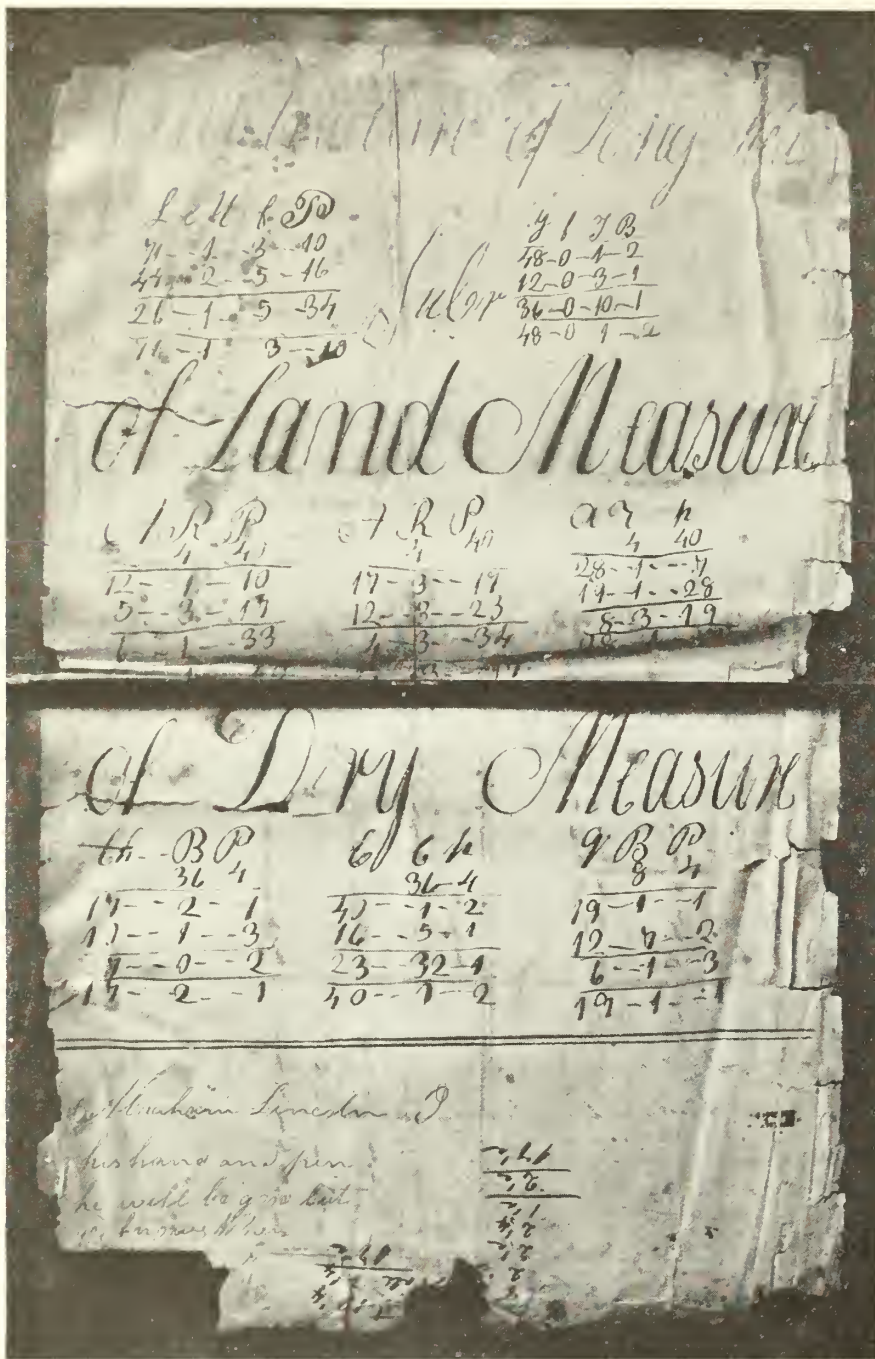 of Long
L e M f Po
71--1--3--10
44--2--5--16
26--1--5--34
71--1 3--10
y f J B
48-0-1-2
12-0-3-1
36-0-10-1
48-0 1-2
of Land Measure
A R P
4 40
12--1--10
5--3--17
6--1--33
A R P
4 40
17-3--17
12--3--23
4--3--34
a r p
4 40
28--1--7
19--1--28
8-3-19
of Dry Measure
ch--B P
36 4
17--2-1
10--1--3
7--0--2
17-2--1
36-4
40--1-2
16--5-1
23--32-1
40--1--2
q B P
8-4
19-1--1
12-7--2
6-1--3
19-1--1
Abraham Lincoln
his hand and pen
he will be good but
knows When